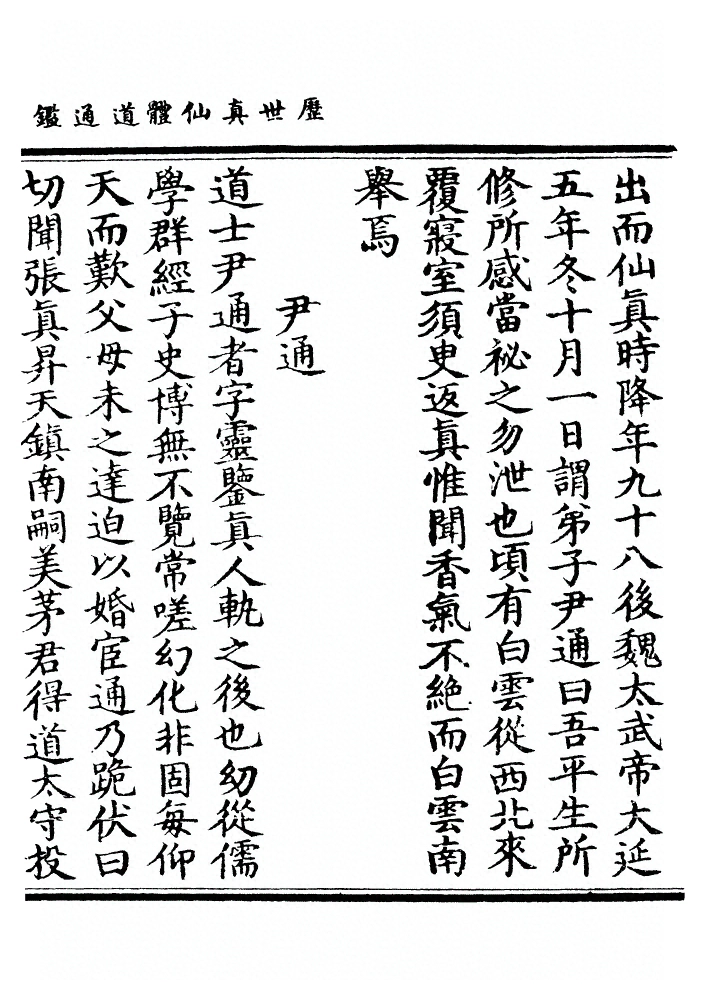 歷世真仙體道通鑑
出而仙眞時降年九十八後魏太武帝大延
五年冬十月一日謂弟子尹通曰吾平生所
修所感當祕之勿泄也頃有白雲從西北來
覆寢室須臾返眞惟聞香氣不絕而白雲南
舉焉
尹通
道士尹通者字靈鑒眞人軌之後也幼從儒
學群經子史博無不覽常嗟幻化非固每仰
天而歎父母未之達迫以婚宦通乃跪伏曰
切聞張眞昇天鎮南嗣美茅君得道太守投